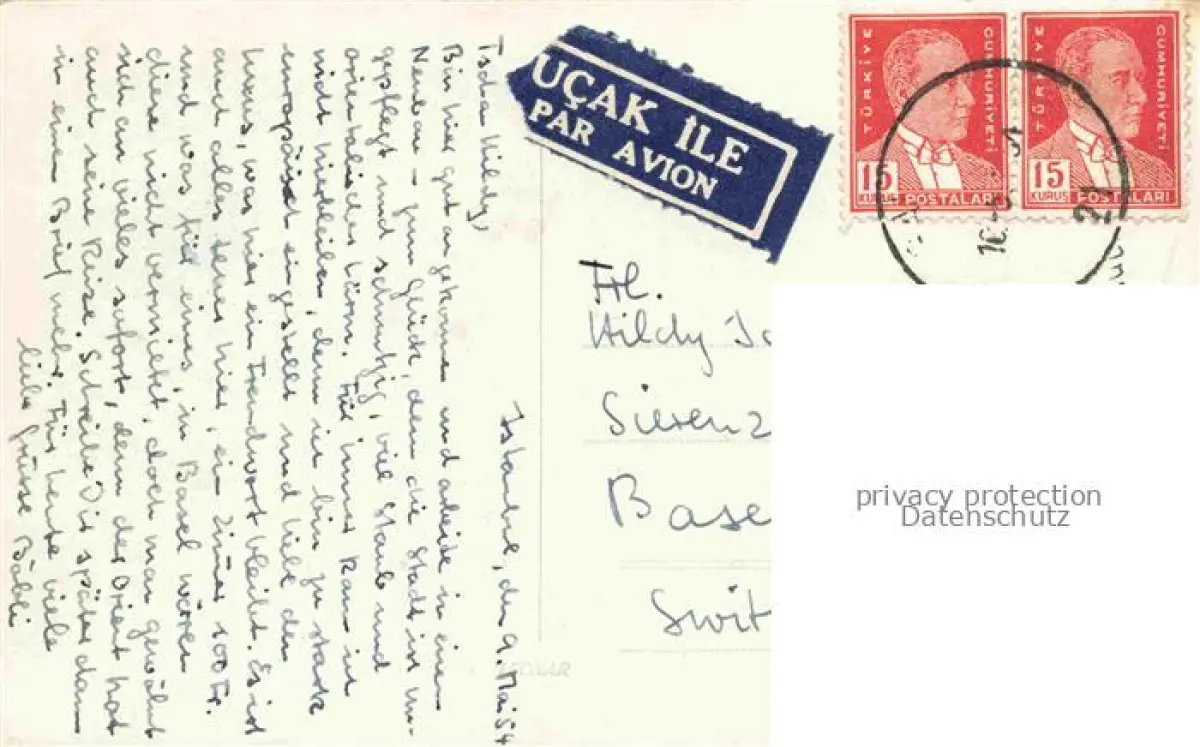 Istanbul, den 9. Mai 54
Tschau Hildy,
Bin hier gut angekommen und arbeite in einem
Neubau – zum Glück, denn die Stadt ist un-
gepflegt und schmutzig, viel Staub und
orientalischer Lärm. Für immer kann ich
nicht hierbleiben, denn ich bin zu stark
europäisch eingestellt und liebe den
Luxus, was hier ein Fremdwort bleibt. Es ist
auch alles teuer hier, ein Zimmer 100 Fr.
und was für eines, in Basel wären
diese nicht vermietet, doch man gewöhnt
sich an vieles sofort, denn der Orient hat
auch seine Reize. Schreibe Dir später dann
in einem Brief mehr. Für heute viele
liebe Grüsse
UÇAK İLE
PAR AVION
TÜRKİYE CUMHURİYETİ
15 KURUŞ POSTALARI
TÜRKİYE CUMHURİYETİ
15 KURUŞ POSTALARI
Frl.
Hildy
Sierenz
Base
Swit
privacy protection
Datenschutz